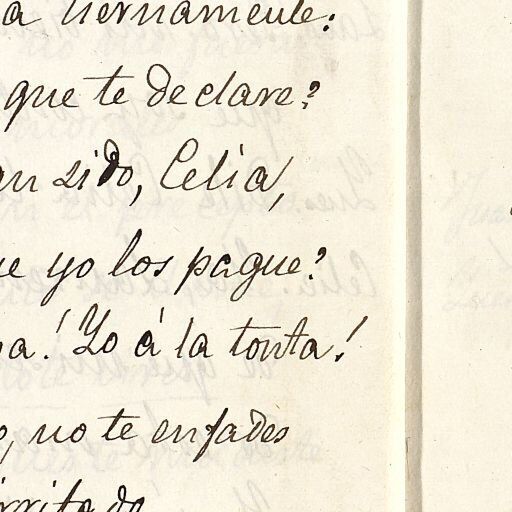 a tiernamente:
que te declare?
an sido, Celia,
ue yo los pague?
a! Yo á la tonta!
o, no te enfades
irritado